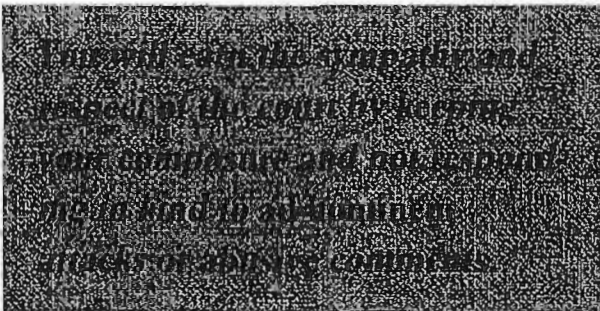 You will earn the sympathy and
respect of the court by keeping
your composure and not respond-
ing in kind to ad hominem
attacks or abusive comments.